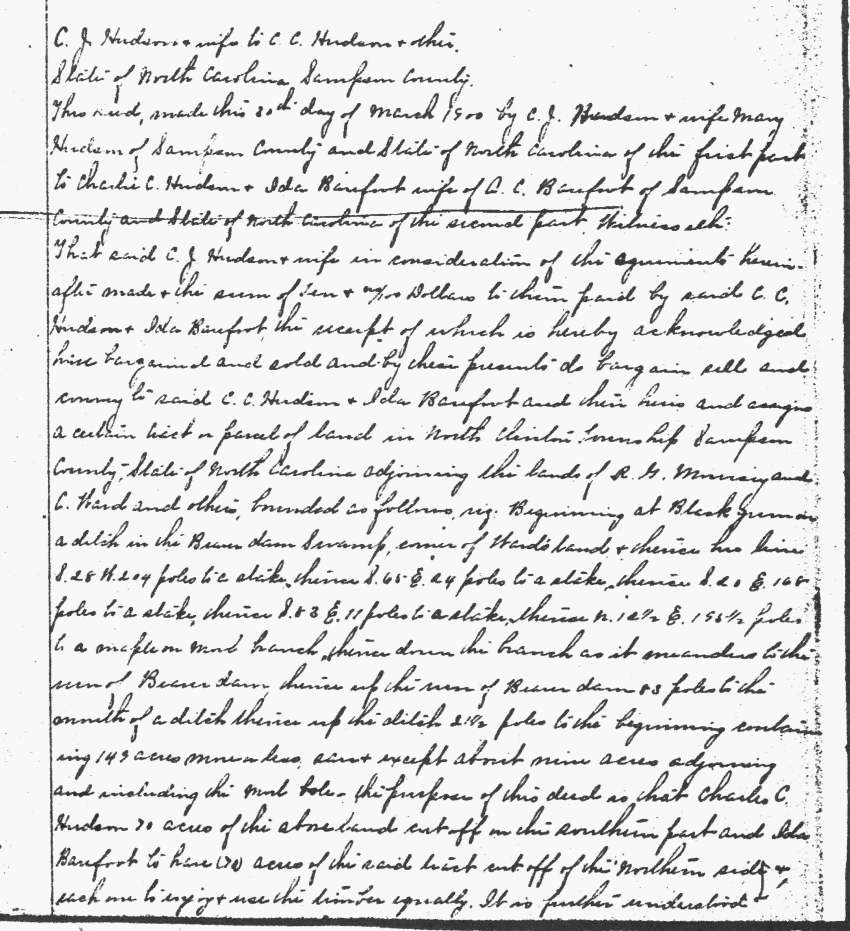 C. J. Hudson + wife to C. C. Hudson + other.
State of North Carolina Sampson County.
This deed, made this 20th day of March 1900 by C. J. Hudson + wife Mary
Hudson of Sampson County and State of North Carolina of the first part
to Charlie C. Hudson + Ida Barefoot wife of A. C. Barefoot of Sampson
County and State of North Carolina of the second part, Witnesseth:
That said C. J. Hudson + wife in consideration of the agreements herein-
after made + the sum of Ten + no/100 Dollars to them paid by said C. C.
Hudson + Ida Barefoot, the receipt of which is hereby acknowledged
have bargained and sold and by these presents do bargain sell and
convey to said C. C. Hudson + Ida Barefoot and their heirs and assigns
a certain tract or parcel of land in North Clinton Township Sampson
County, State of North Carolina adjoining the lands of R. G. and
C. Ward and others, bounded as follows, viz: Beginning at Black gum on
a ditch in the Beaver dam Swamp, corner of Wards land + thence his line
S. 28 W. 204 poles to a stake, thence S. 65 E. 24 poles to a stake, thence S. 20 E. 168
poles to a stake, thence S. 83 E. 11 poles to a stake, thence N. 12½ E. poles
to a maple on branch, thence down the branch as it meanders to the
run of Beaver dam, thence up the run of Beaver dam 83 poles to the
mouth of a ditch thence up the ditch 21½ poles to the beginning contain-
ing 149 acres more or less, save + except about nine acres adjoining
and including the - the purpose of this deed is that Charles C.
Hudson 70 acres of the above land cut off on the southern part and Ida
Barefoot to have (70) acres of the said tract cut off of the Northern side +
each one to enjoy + use the timber equally. It is further understood